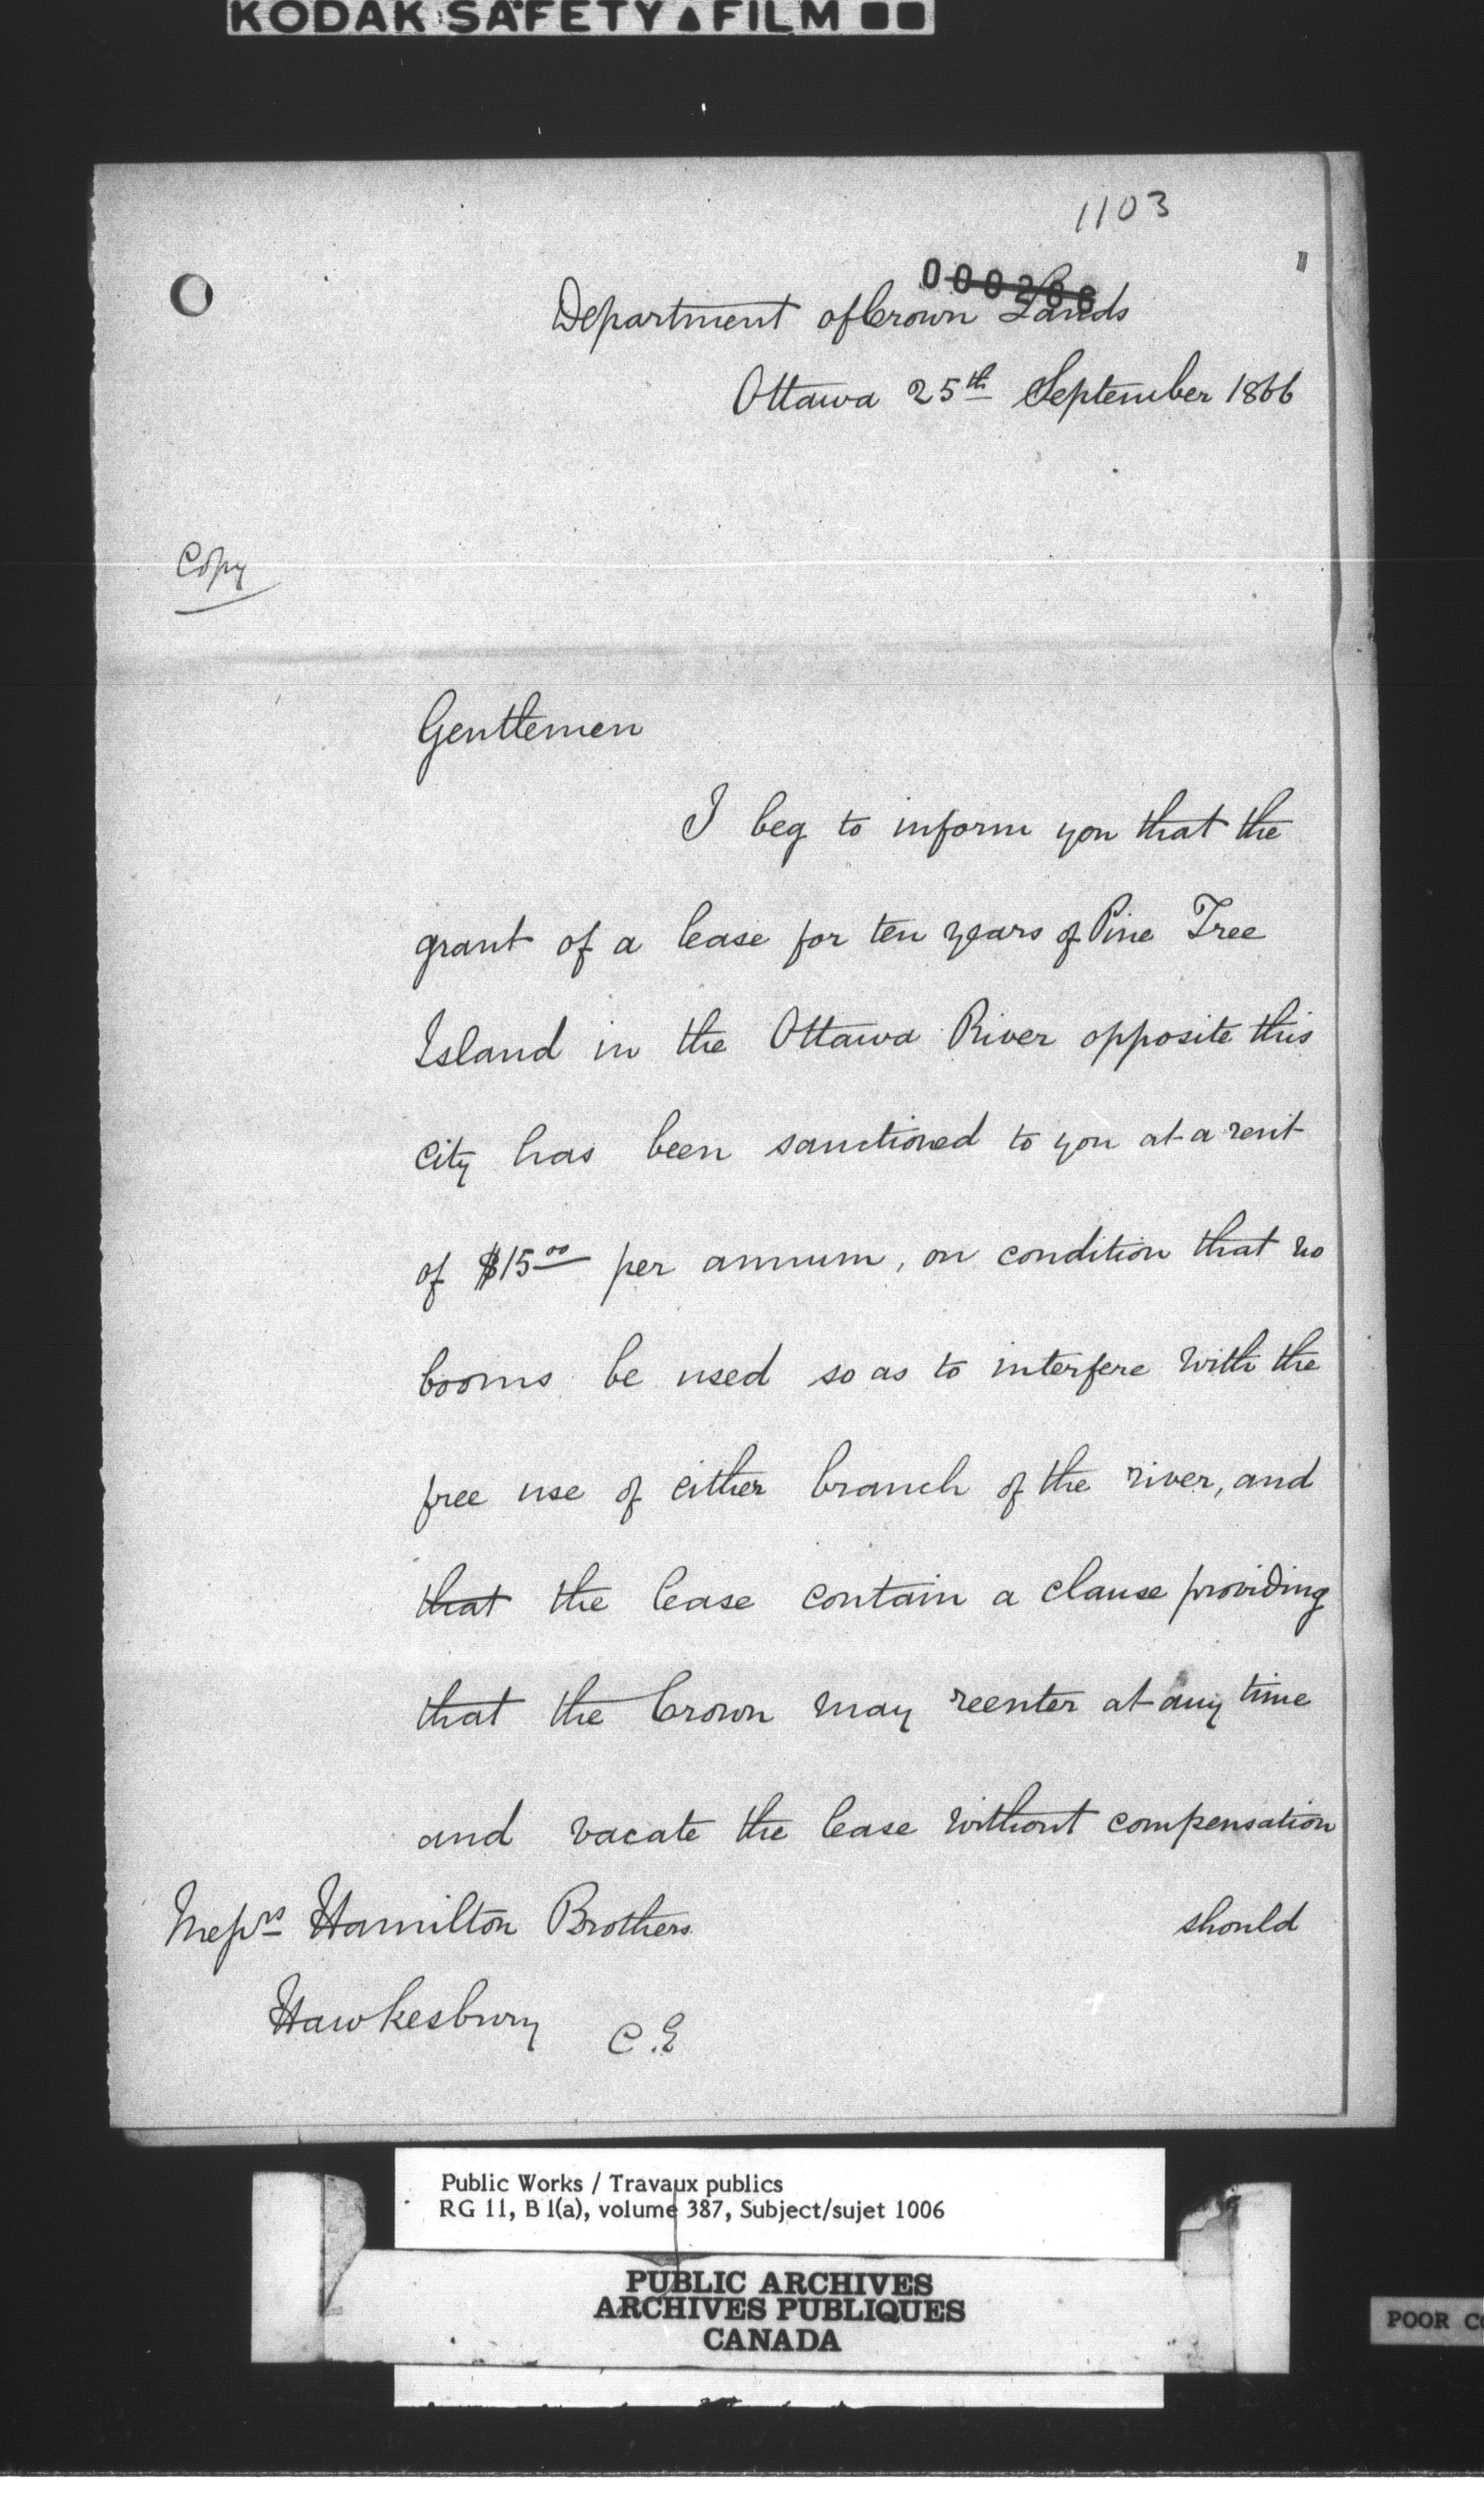 KODAK SAFETY▲FILM
1103
000286
Department of Crown Lands
Ottawa 25th September 1866
Copy
Gentlemen
I beg to inform you that the
grant of a lease for ten years of Pine Tree
Island in the Ottawa River opposite this
city has been sanctioned to you at a rent
of $15.00 per annum, on condition that no
booms be used so as to interfere with the
free use of either branch of the river, and
that the lease contain a clause providing
that the Crown may reenter at any time
and vacate the lease without compensation
should
Messrs Hamilton Brothers
Hawkesbury C.E
Public Works / Travaux publics
RG 11, B 1(a), volume 387, Subject/sujet 1006
PUBLIC ARCHIVES
ARCHIVES PUBLIQUES
CANADA
POOR CO